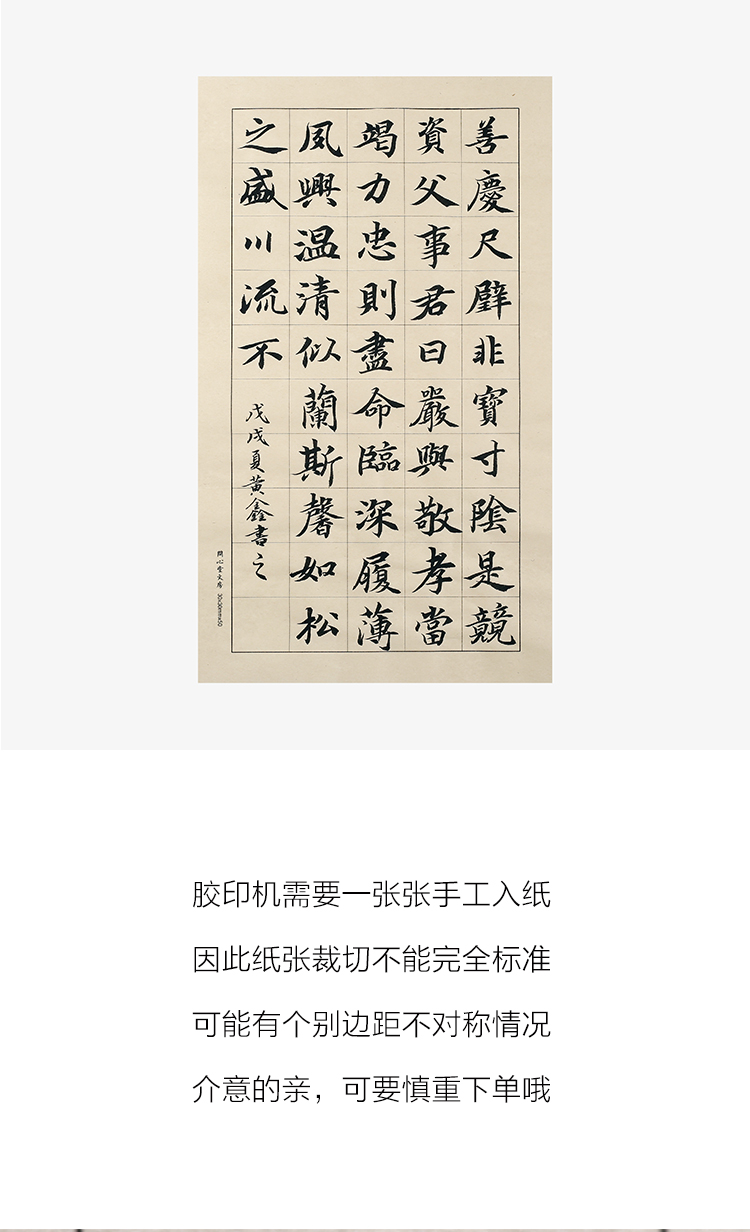 善慶尺璧非寶寸陰是競
資父事君曰嚴與敬孝當
竭力忠則盡命臨深履薄
夙興温清似蘭斯馨如松
之盛川流不
戊戌夏黄鑫書之
問心堂文房 30x30mmx50
胶印机需要一张张手工入纸
因此纸张裁切不能完全标准
可能有个别边距不对称情况
介意的亲，可要慎重下单哦